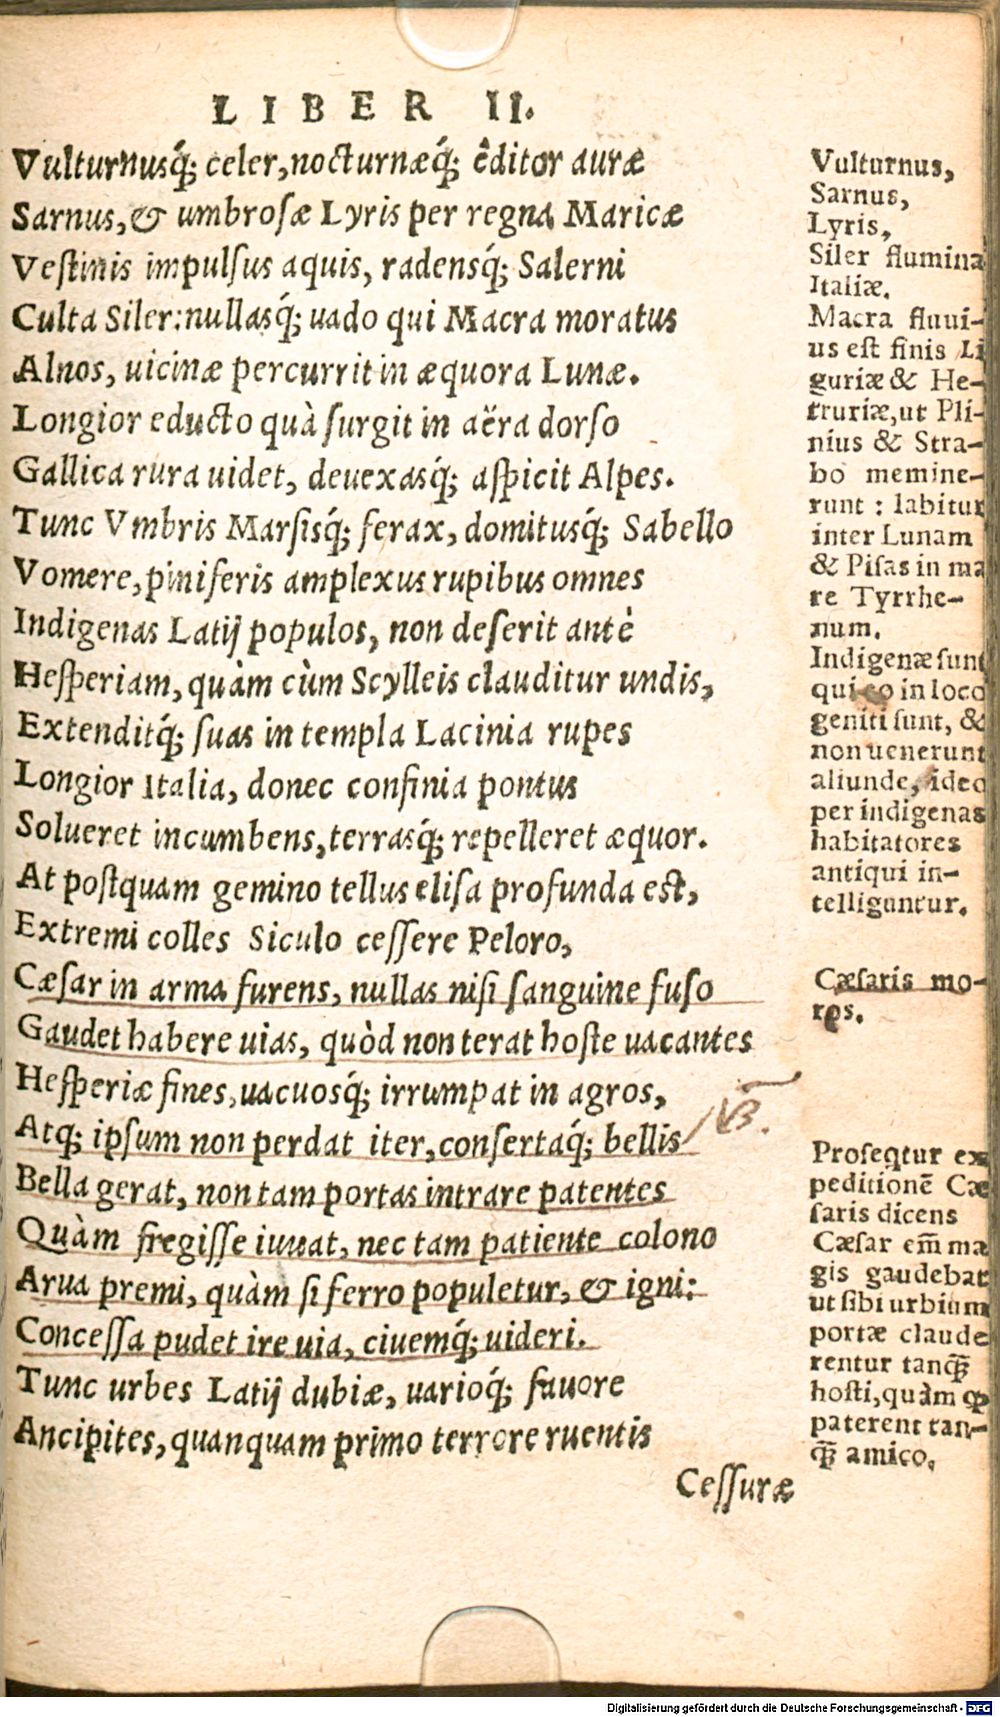 LIBER II.
Vulturnusq́; celer, nocturnæq́; êditor auræ
Sarnus, & umbrosæ Lyris per regna Maricæ
Vestinis impulsus aquis, radensq́; Salerni
Culta Siler: nullasq́; uado qui Macra moratus
Alnos, uicinæ percurrit in æquora Lunæ.
Longior educto quà surgit in aëra dorso
Gallica rura uidet, deuexasq́; aspicit Alpes.
Tunc Vmbris Marsisq́; ferax, domitusq́; Sabello
Vomere, piniferis amplexus rupibus omnes
Indigenas Latij populos, non deserit antè
Hesperiam, quàm cùm Scylleis clauditur undis,
Extenditq́; suas in templa Lacinia rupes
Longior Italia, donec confinia pontus
Solueret incumbens, terrasq́; repelleret æquor.
At postquam gemino tellus elisa profunda est,
Extremi colles Siculo cessere Peloro,
Cæsar in arma furens, nullas nisi sanguine fuso
Gaudet habere uias, quòd non terat hoste uacantes
Hesperiæ fines, uacuosq́; irrumpat in agros,
Atq; ipsum non perdat iter, consertaq́; bellis
Bella gerat, non tam portas intrare patentes
Quàm fregisse iuuat, nec tam patiente colono
Arua premi, quàm si ferro populetur, & igni:
Concessa pudet ire uia, ciuemq́; uideri.
Tunc urbes Latij dubiæ, uarioq́; fauore
Ancipites, quanquam primo terrore ruentis
Cessuræ
Vulturnus,
Sarnus,
Lyris,
Siler flumina
Italiæ.
Macra fluui-
us est finis Li
guriæ & He-
truriæ, ut Pli-
nius & Stra-
bo memine-
runt : labitur
inter Lunam
& Pisas in ma
re Tyrrhe-
num.
Indigenæ sunt
qui eo in loco
geniti sunt, &
non uenerunt
aliunde, ideo
per indigenas
habitatores
antiqui in-
telliguntur.
Cæsaris mo-
res.
Proseqtur ex
peditionē Cæ
saris dicens
Cæsar em̄ ma
gis gaudebat
ut sibi urbium
portæ claude
rentur tanq̄ꝫ
hosti, quàm ꝙ
paterent tan-
q̄ꝫ amico.
Digitalisierung gefördert durch die Deutsche Forschungsgemeinschaft - DFG